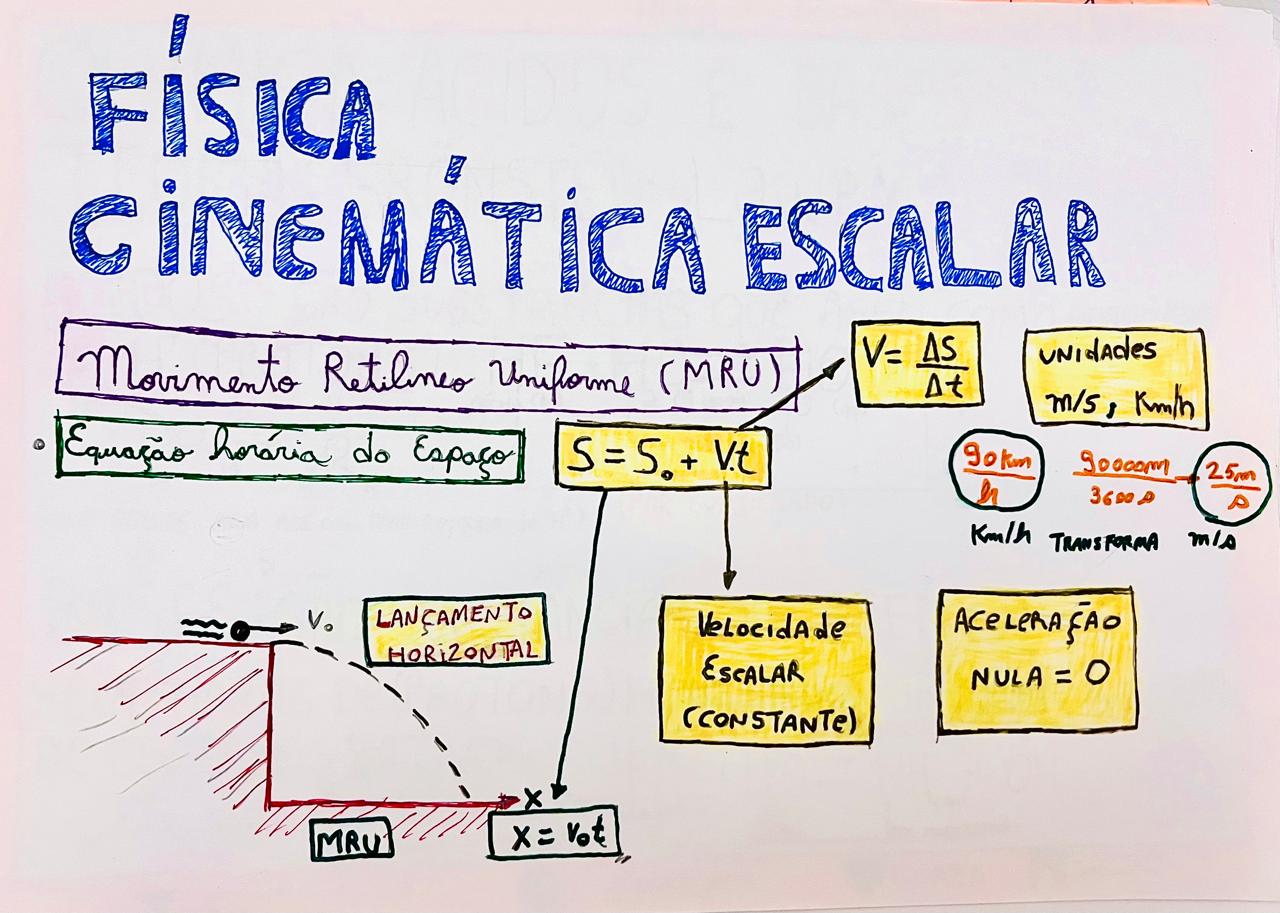 FÍSICA
CINEMÁTICA ESCALAR
Movimento Retilineo Uniforme (MRU)
V = ΔS / Δt
UNIDADES
m/s, Km/h
Equação horária do Espaço
S = S₀ + V.t
90 km / h
90000m / 3600 s
25m / s
Km/h TRANSFORMA m/s
V₀
LANÇAMENTO
HORIZONTAL
VELOCIDADE
ESCALAR
(CONSTANTE)
ACELERAÇÃO
NULA = 0
X
MRU
X = V₀t